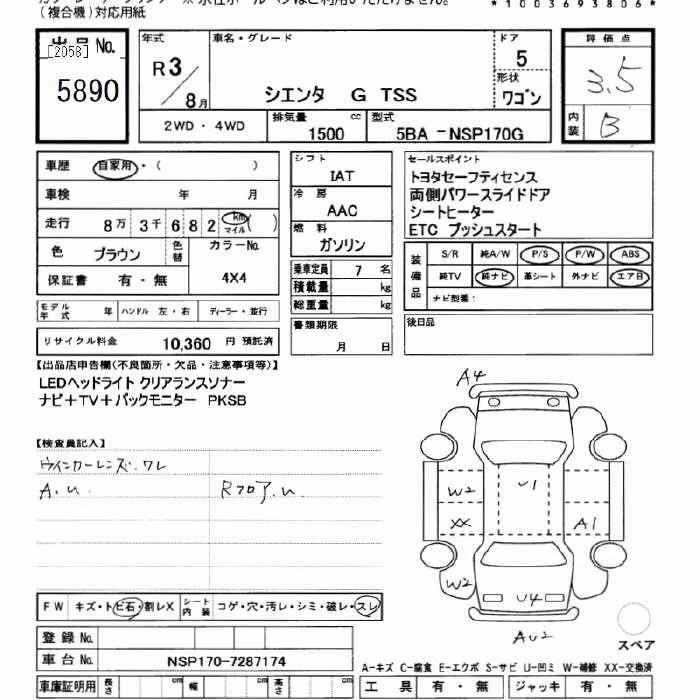 (複合機)対応用紙
*1003693806*
出品 No.
[2058]
5890
年式
R3/8月
車名・グレード
シエンタ G TSS
ドア
5
形状
ワゴン
2WD・4WD
排気量 cc
1500
型式
5BA-NSP170G
評価点
3.5
内装
B
車歴 自家用・( )
車検 年 月
走行 8万 3千 6 8 2 km マイル ( )
色 ブラウン 色替 カラーNo.
保証書 有・無 4X4
モデル年式 年 ハンドル 左・右 ディーラー・並行
リサイクル料金 10,360 円 預託済
シフト
IAT
冷房
AAC
燃料
ガソリン
乗車定員 7 名
積載量 kg
総重量 kg
書類期限
月 日
セールスポイント
トヨタセーフティセンス
両側パワースライドドア
シートヒーター
ETC プッシュスタート
装備品
S/R 純A/W P/S P/W ABS
純TV 純ナビ 革シート 外ナビ エアB
ナビ型番:
後日品
【出品店申告欄(不良箇所・欠品・注意事項等)】
LEDヘッドライト クリアランスソナー
ナビ+TV+バックモニター PKSB
【検査員記入】
ウインカーレンズ.ワレ
A.u. Rフロア.u
FW キズ・トビ石・割レX シート内装 コゲ・穴・汚レ・シミ・破レ・スレ
登録 No.
車台 No. NSP170-7287174
車庫証明用 長さ cm 幅 cm 高さ cm
A4
W2
U1
XX
A1
W2
U4
AU2
スペア
A-キズ C-腐食 E-エクボ S-サビ U-凹ミ W-補修 XX-交換
工具 有・無 ジャッキ 有・無